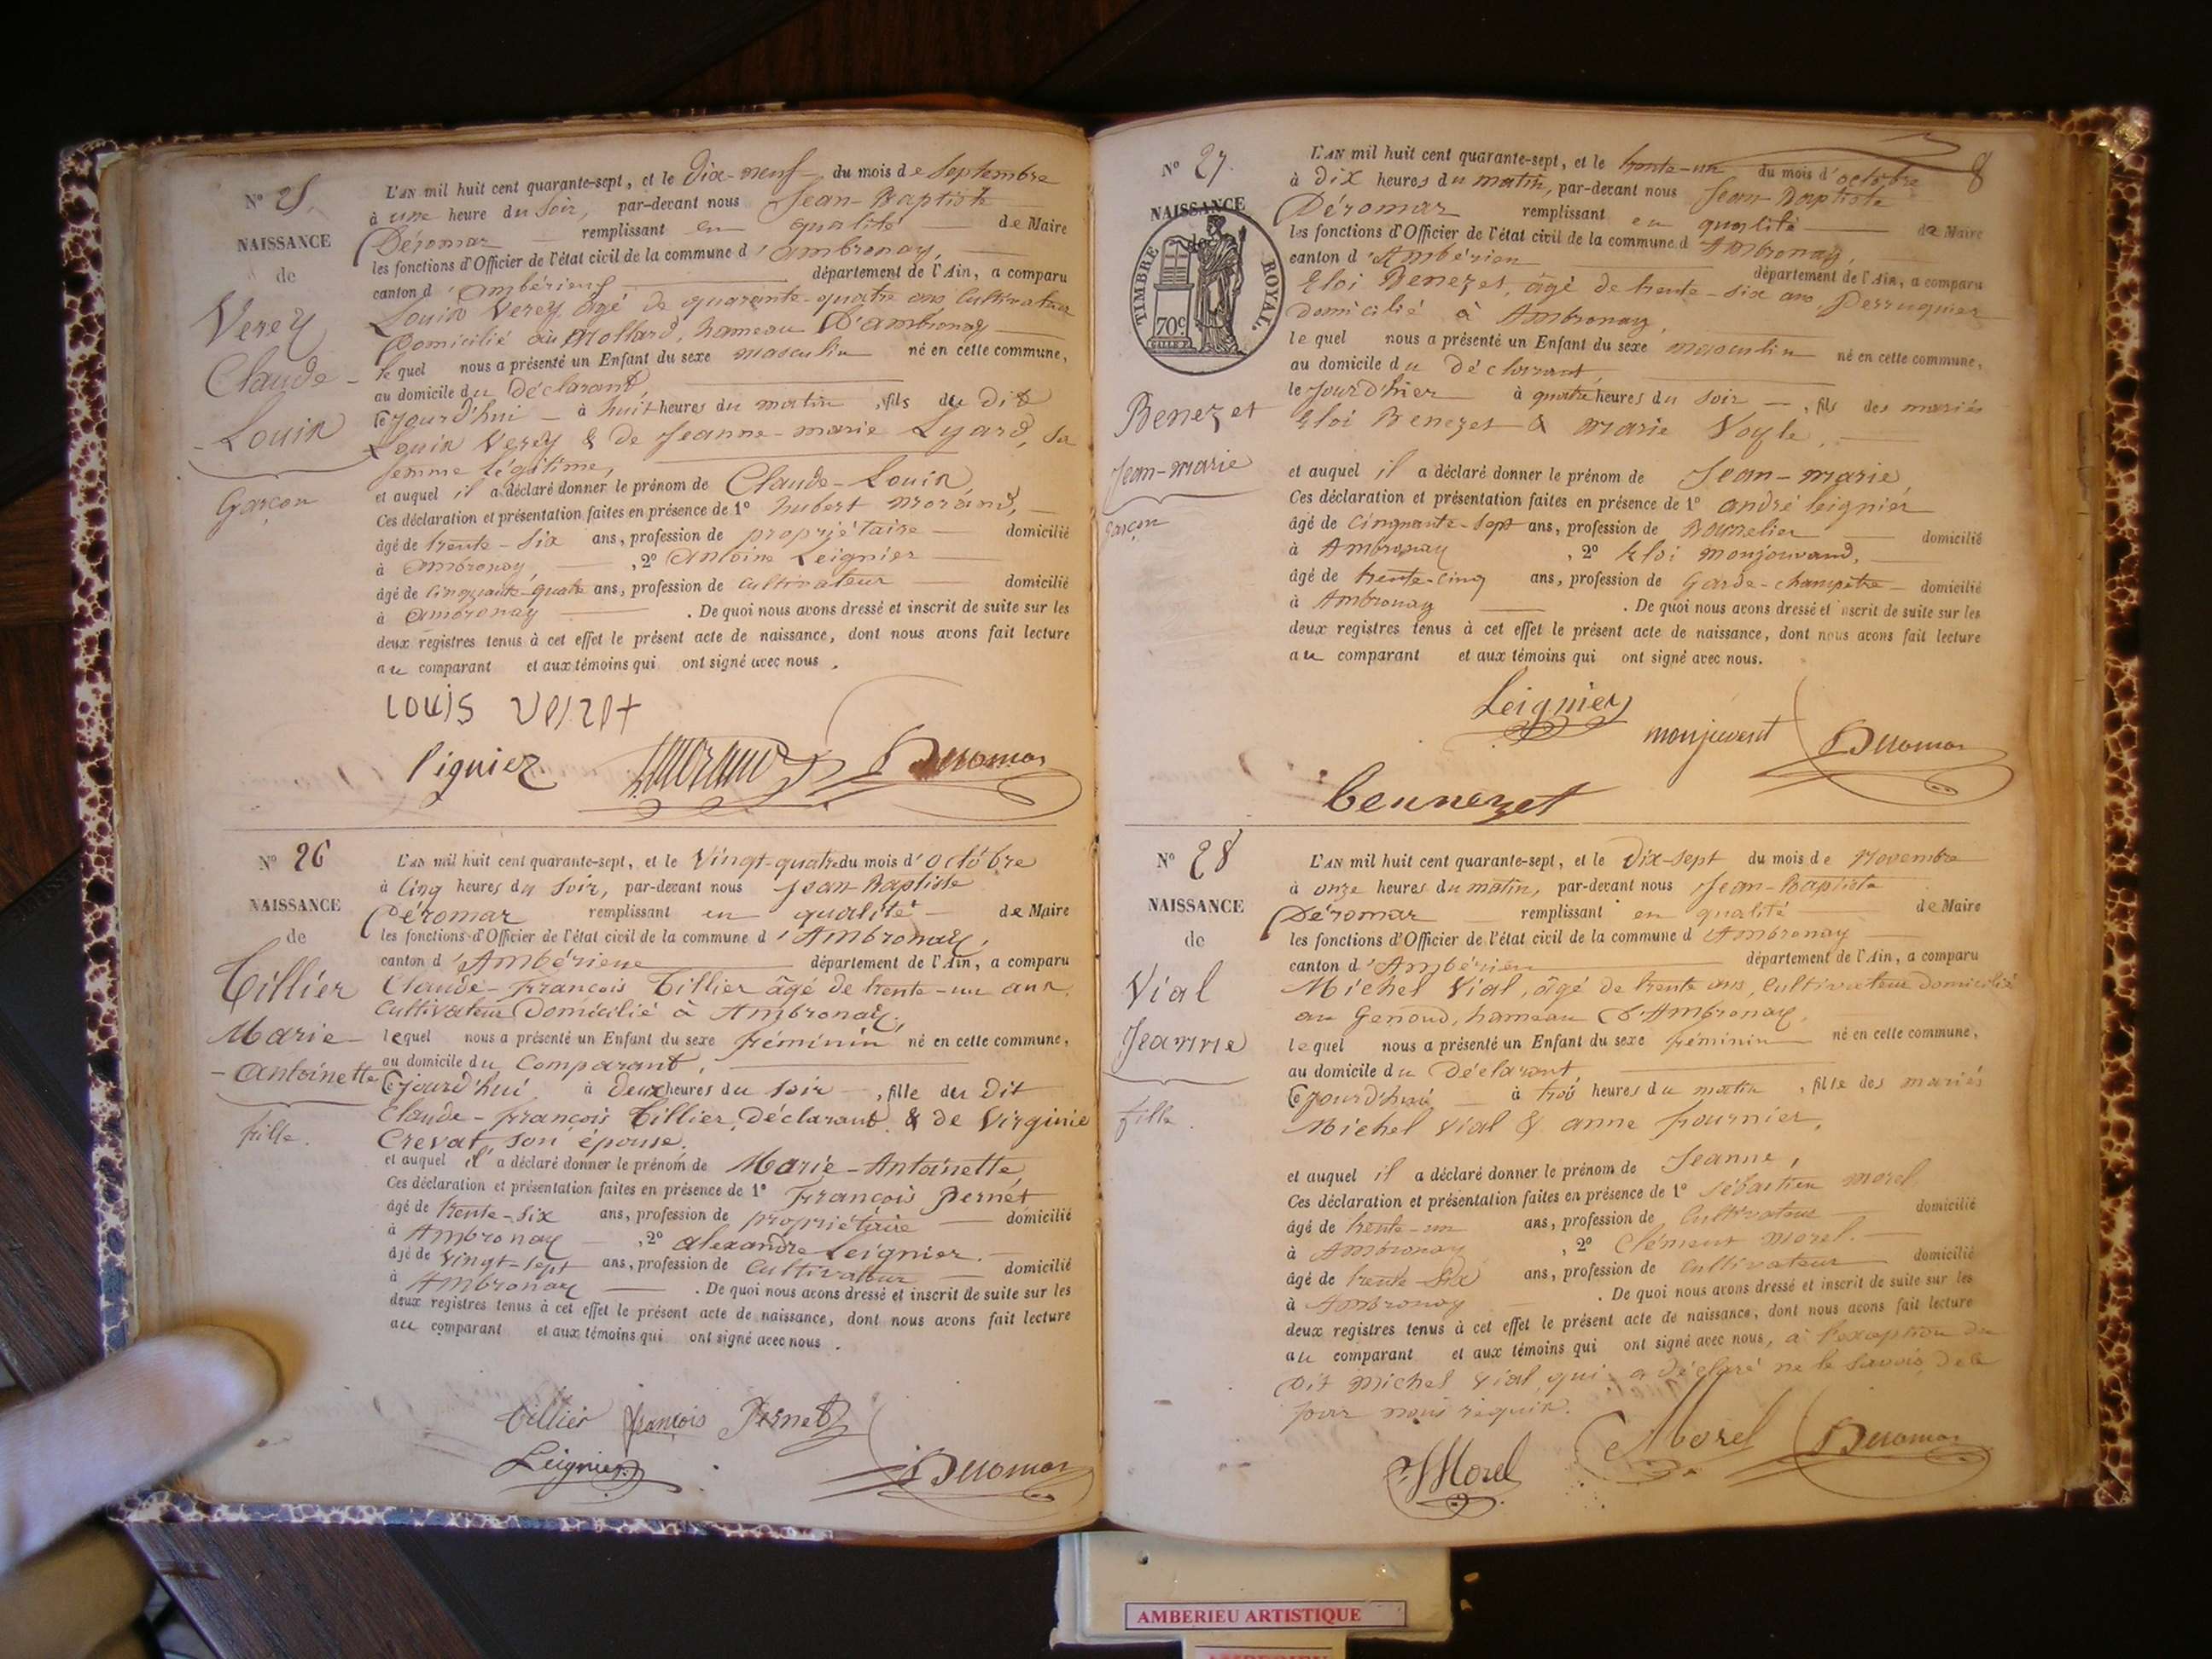 N° 25.
NAISSANCE
de
Verey
Claude-
-Louis
Garçon
L'AN mil huit cent quarante-sept, et le Dix-neuf du mois de Septembre
à une heure du Soir, par-devant nous Jean-Baptiste
Déromar remplissant en qualité de Maire
les fonctions d'Officier de l'état civil de la commune d'Ambronay,
canton d'Ambérieux département de l'Ain, a comparu
Louis Verey âgé de quarante-quatre ans Cultivateur
Domicilié au Mollard, hameau D'ambronay
lequel nous a présenté un Enfant du sexe masculin né en cette commune,
au domicile du Déclarant,
Cejourd'hui à huit heures du matin, fils du Dit
Louis Verey & de Jeanne-marie Lyard, Sa
femme Légitime,
et auquel il a déclaré donner le prénom de Claude-Louis
Ces déclaration et présentation faites en présence de 1° hubert Morand,
âgé de trente-six ans, profession de propriétaire domicilié
à Ambronay, , 2° Antoine Leignier
âgé de Cinquante-quatre ans, profession de Cultivateur domicilié
à Ambronay . De quoi nous avons dressé et inscrit de suite sur les
deux registres tenus à cet effet le présent acte de naissance, dont nous avons fait lecture
au comparant et aux témoins qui ont signé avec nous.
Louis Verey
Ligniez Morand Deromar
N° 26
NAISSANCE
de
Tillier
Marie-
-Antoinette
fille.
L'AN mil huit cent quarante-sept, et le Vingt-quatre du mois d'Octobre
à Cinq heures du Soir, par-devant nous Jean-Baptiste
Déromar remplissant en qualité de Maire
les fonctions d'Officier de l'état civil de la commune d'Ambronay,
canton d'Ambérieux département de l'Ain, a comparu
Claude-François Tillier âgé de trente-un ans,
Cultivateur Domicilié à Ambronay,
lequel nous a présenté un Enfant du sexe féminin né en cette commune,
au domicile du Comparant,
Cejourd'hui à Deux heures du Soir, fille du Dit
Claude-François Tillier, Déclarant & de Virginie
Crevat, Son épouse.
et auquel il a déclaré donner le prénom de Marie-Antoinette,
Ces déclaration et présentation faites en présence de 1° François Pernet
âgé de trente-six ans, profession de propriétaire domicilié
à Ambronay , 2° Alexandre Leignier.
âgé de Vingt-sept ans, profession de Cultivateur domicilié
à Ambronay . De quoi nous avons dressé et inscrit de suite sur les
deux registres tenus à cet effet le présent acte de naissance, dont nous avons fait lecture
au comparant et aux témoins qui ont signé avec nous.
Tillier François Pernet
Leignier Deromar
8
N° 27.
NAISSANCE
TIMBRE ROYAL.
70c
Benezet
Jean-marie
garçon
L'AN mil huit cent quarante-sept, et le trente-un du mois d'octobre
à Dix heures du matin, par-devant nous Jean-Baptiste
Déromar remplissant en qualité de Maire
les fonctions d'Officier de l'état civil de la commune d'Ambronay,
canton d'Ambérieu département de l'Ain, a comparu
Eloi Benezet, âgé de trente-six ans, Perruquier
domicilié à Ambronay,
lequel nous a présenté un Enfant du sexe masculin né en cette commune,
au domicile du Déclarant,
le jourd'hier à quatre heures du Soir, fils des mariés
Eloi Benezet & Marie Voyle,
et auquel il a déclaré donner le prénom de Jean-marie,
Ces déclaration et présentation faites en présence de 1° andré leignier
âgé de Cinquante-Sept ans, profession de Bourrelier domicilié
à Ambronay , 2° Eloi Monjouvand,
âgé de trente-cinq ans, profession de Garde-champêtre domicilié
à Ambronay . De quoi nous avons dressé et inscrit de suite sur les
deux registres tenus à cet effet le présent acte de naissance, dont nous avons fait lecture
au comparant et aux témoins qui ont signé avec nous.
Leignier
monjuvent Deromar
bennezet
N° 28
NAISSANCE
de
Vial
Jeanne
fille.
L'AN mil huit cent quarante-sept, et le Dix-Sept du mois de Novembre
à onze heures du matin, par-devant nous Jean-Baptiste
Déromar remplissant en qualité de Maire
les fonctions d'Officier de l'état civil de la commune d'Ambronay
canton d'Ambérieu département de l'Ain, a comparu
Michel Vial, âgé de trente ans, Cultivateur domicilié
au Genoud, hameau D'Ambronay,
lequel nous a présenté un Enfant du sexe féminin né en cette commune,
au domicile du Déclarant,
Cejourd'hui à trois heures du matin, fille des mariés
Michel Vial & anne fournier,
et auquel il a déclaré donner le prénom de Jeanne,
Ces déclaration et présentation faites en présence de 1° Sébastien Morel,
âgé de trente-un ans, profession de Cultivateur domicilié
à Ambronay , 2° Clément Morel.
âgé de trente-Six ans, profession de Cultivateur domicilié
à Ambronay . De quoi nous avons dressé et inscrit de suite sur les
deux registres tenus à cet effet le présent acte de naissance, dont nous avons fait lecture
au comparant et aux témoins qui ont signé avec nous, à l'exception du
Dit Michel Vial qui a Déclaré ne le Savoir, de ce
pour nous requis.
Morel CMorel Deromar
AMBERIEU ARTISTIQUE